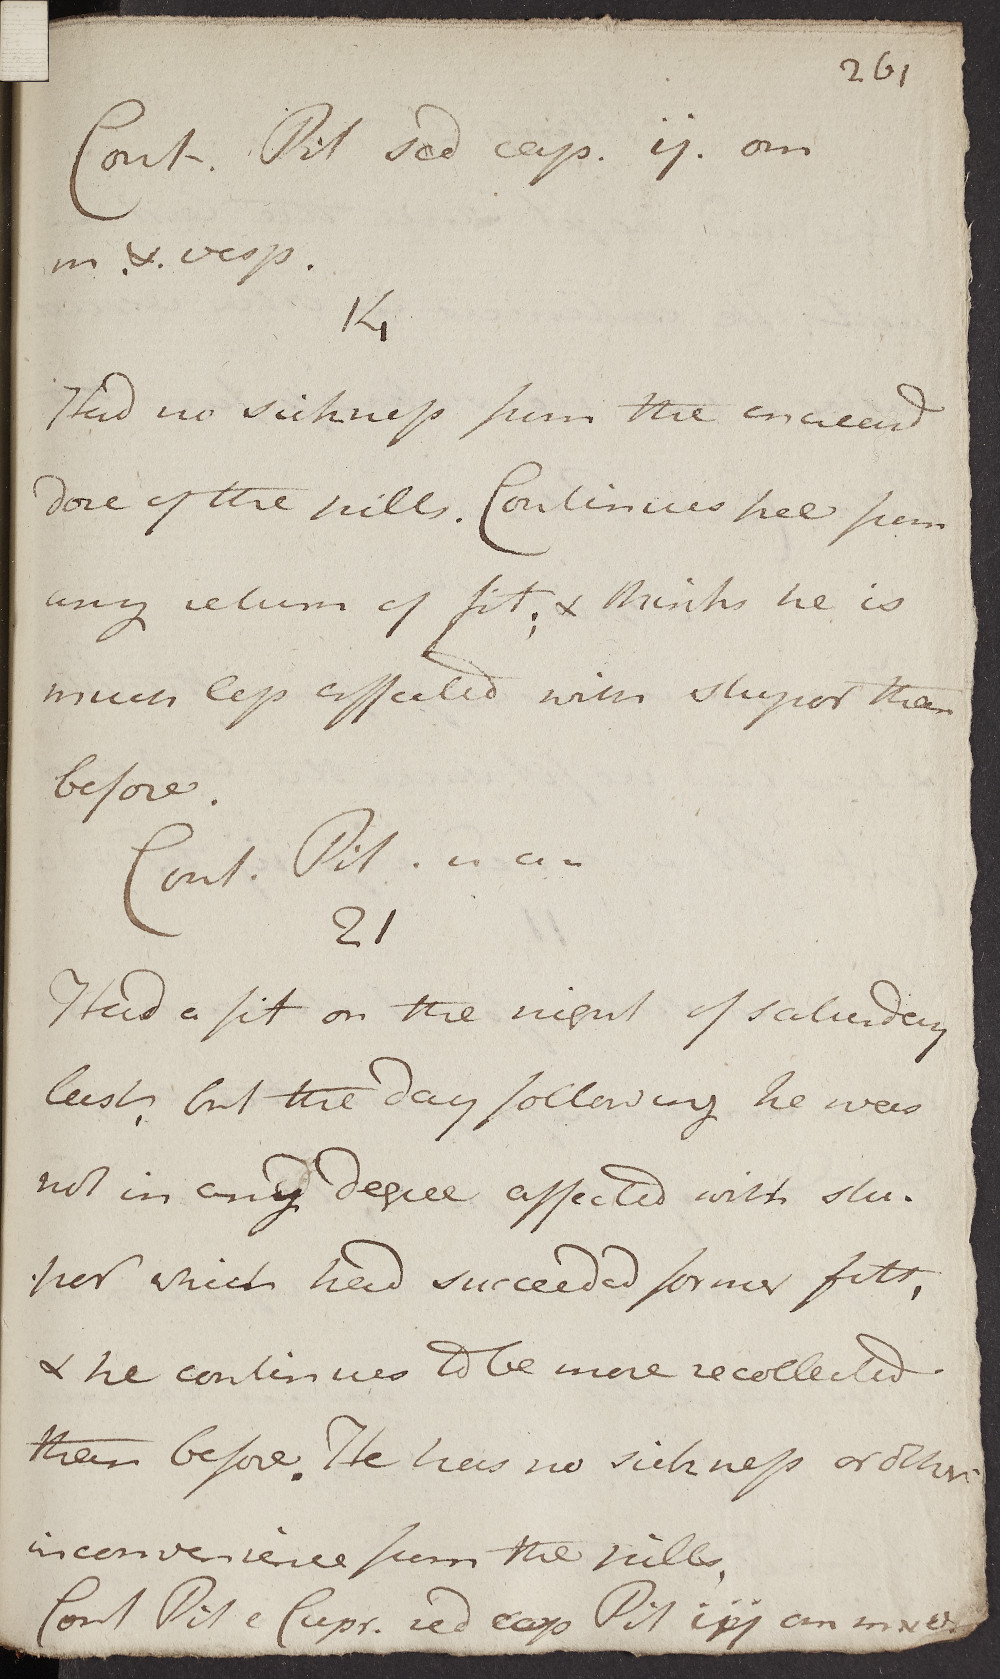 261
Cont. Pil sed cap. ij. om
m. & vesp.
14
Had no sickness from the encreasd
dose of the pills. Continues free from
any return of fit; & thinks he is
much less affected with stupor than
before.
Cont. Pil.
21
Had a fit on the night of saturday
last, but the day following he was
not in any degree affected with stu-
por which had succeeded former fitt,
& he continues to be more recollected
than before. He has no sickness or other
inconvenience from the pills,
Cont Pil e Cupr. sed cap Pil iij om m & v.